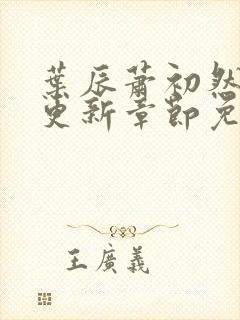 葉辰蕭初然
更新章節免
王廣義